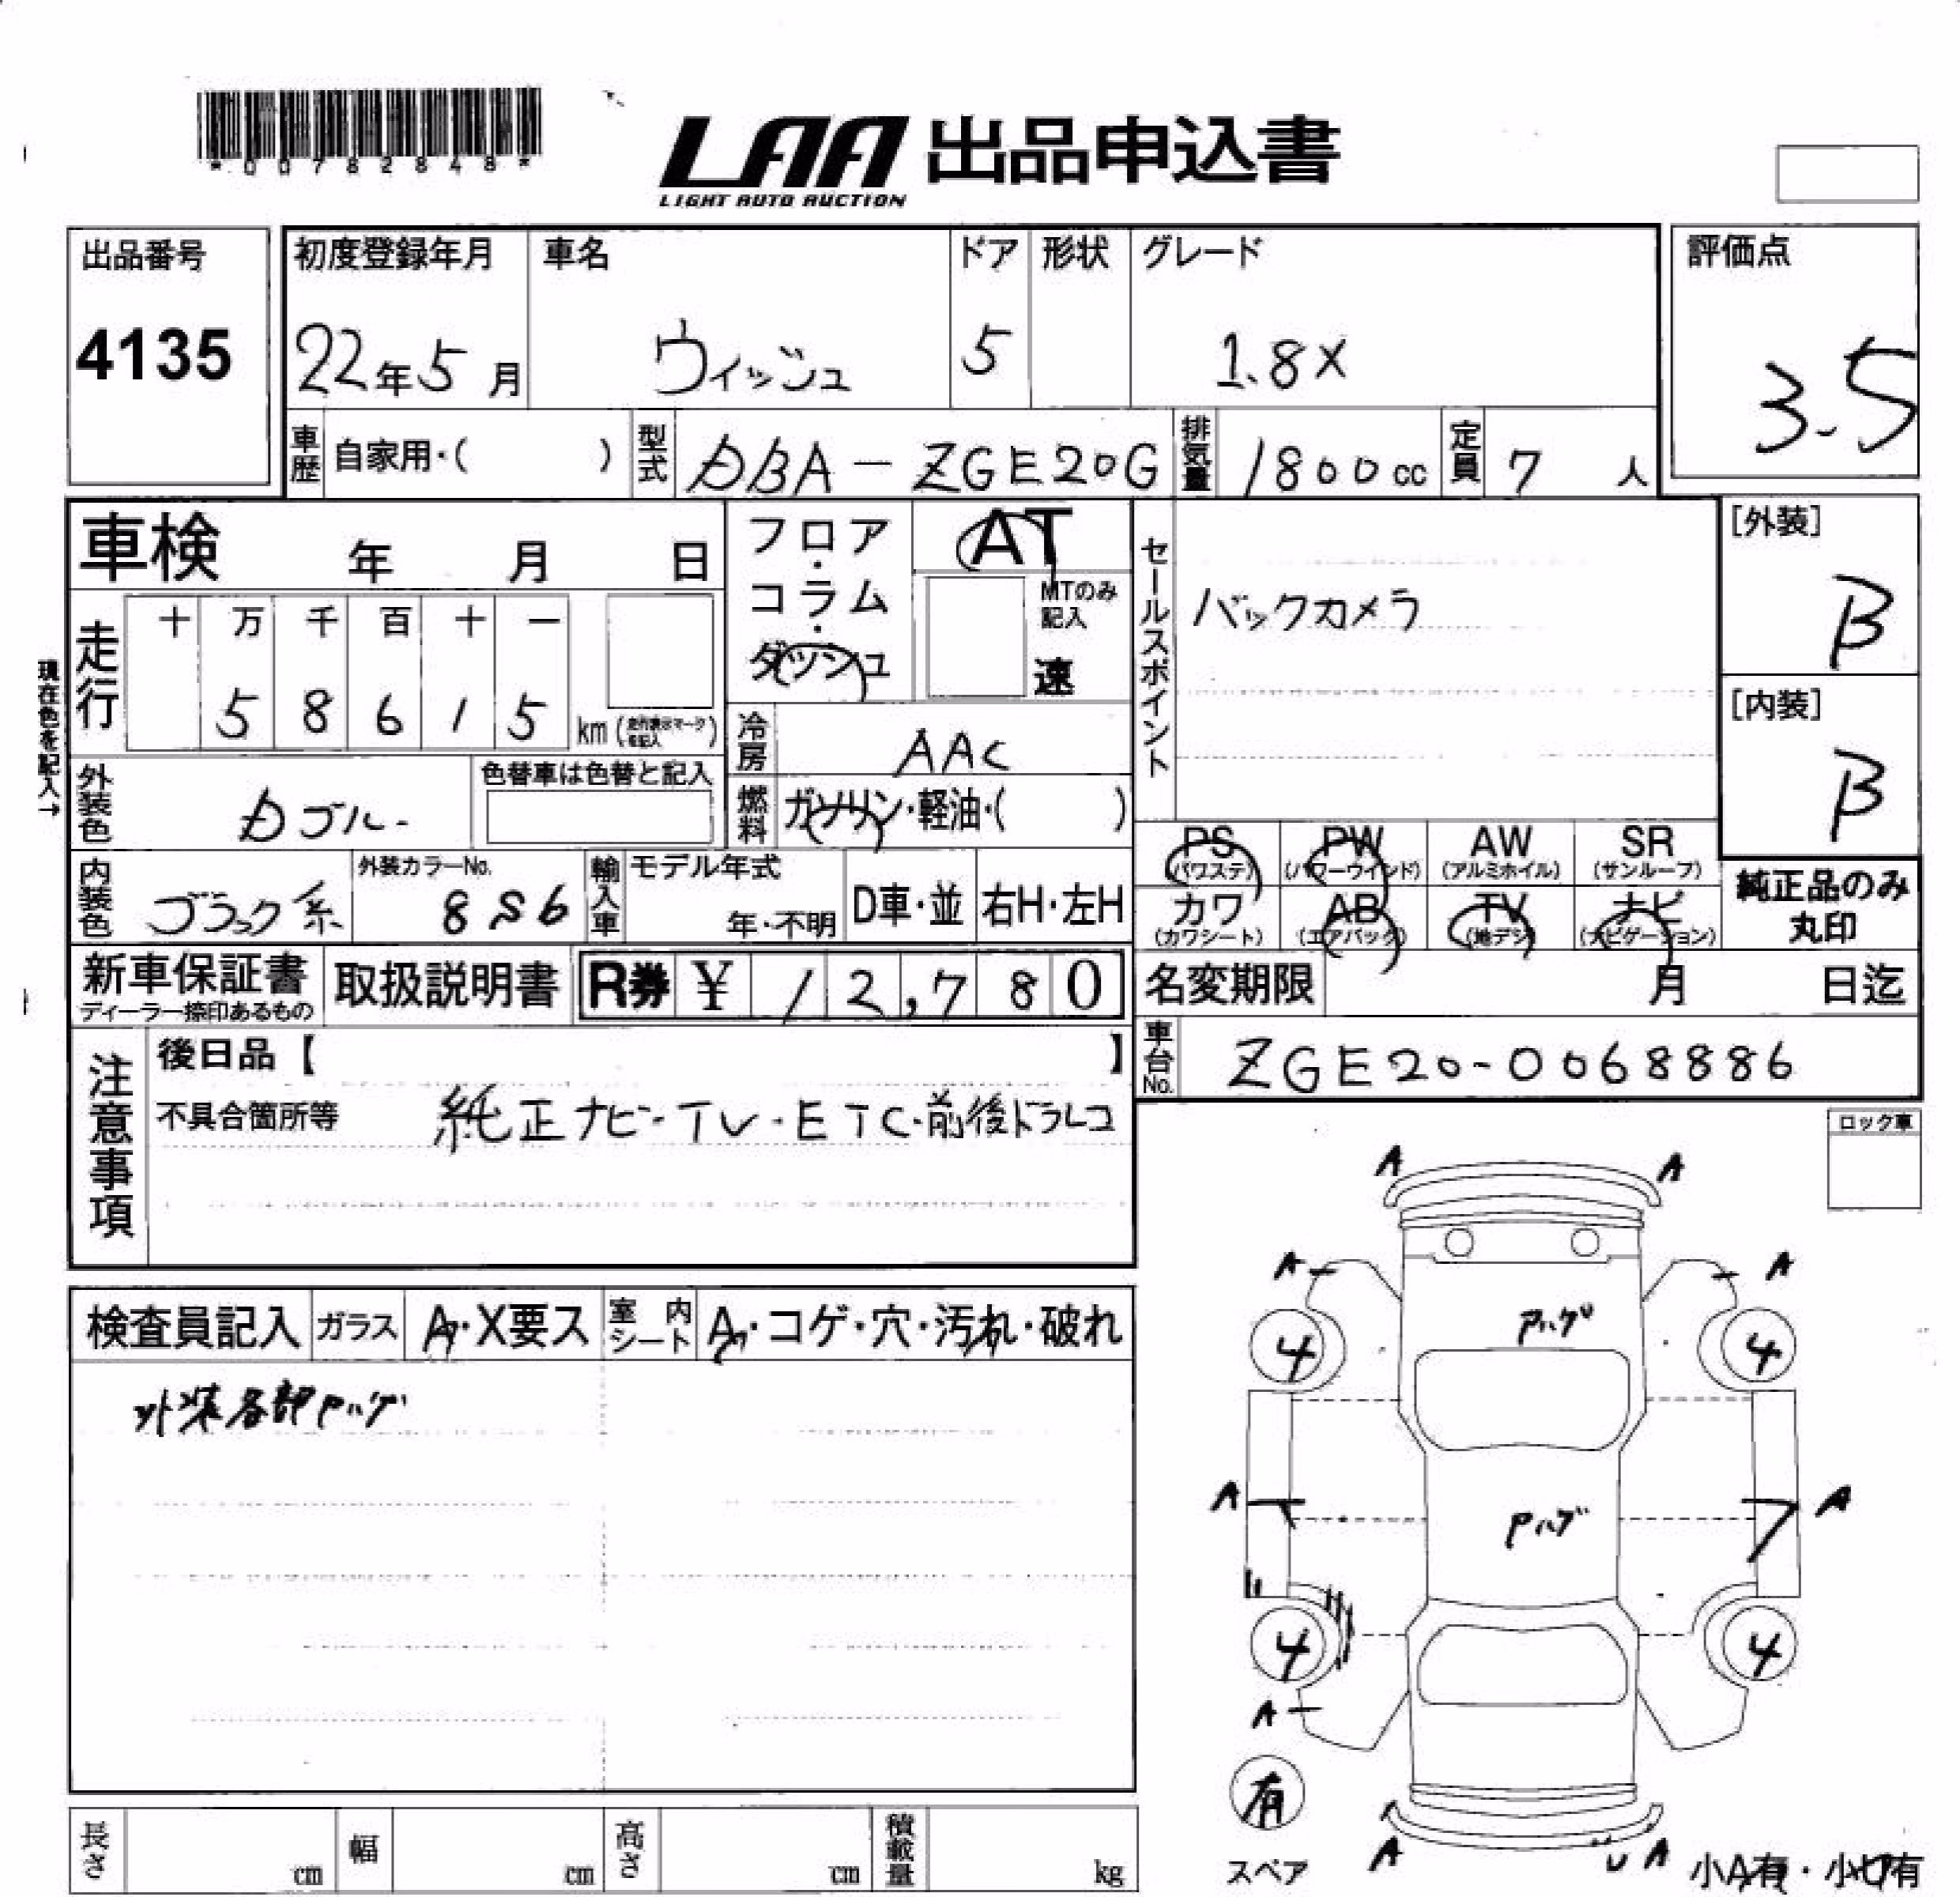 *00782848*
LAA 出品申込書
LIGHT AUTO AUCTION
出品番号
4135
初度登録年月
22年5月
車名
ウィッシュ
ドア
5
形状
グレード
1.8X
評価点
3.5
車歴 自家用・( )
型式 DBA-ZGE20G
排気量 1800cc
定員 7人
車検 年 月 日
フロア・コラム・ダッシュ
AT
MTのみ記入
速
セールスポイント
バックカメラ
[外装]
B
[内装]
B
現在色を記入→
走行
十 万 千 百 十 一
5 8 6 1 5 km
冷房 AAC
外装色
色替車は色替と記入
燃料 ガソリン・軽油・( )
PS (パワステ)
PW (パワーウインド)
AW (アルミホイル)
SR (サンルーフ)
カワ (カワシート)
AB (エアバック)
TV (地デジ)
ナビ (ナビゲーション)
純正品のみ丸印
内装色 ブラック系
外装カラーNo.
8S6
輸入車
モデル年式
年・不明
D車・並
右H・左H
新車保証書
ディーラー捺印あるもの
取扱説明書
R券 ¥ 12,780
名変期限 月 日迄
車台No. ZGE20-0068886
注意事項
後日品【 】
不具合箇所等 純正ナビ・TV・ETC・前後ドラレコ
ロック車
検査員記入
ガラス A・X要ス
室内シート A・コゲ・穴・汚れ・破れ
外装各部Pハゲ
A A
A A
Pハゲ
4 4
A A
Pハゲ
4 4
A
有
スペア
A U A
小A有・小U有
長さ cm
幅 cm
高さ cm
積載量 kg